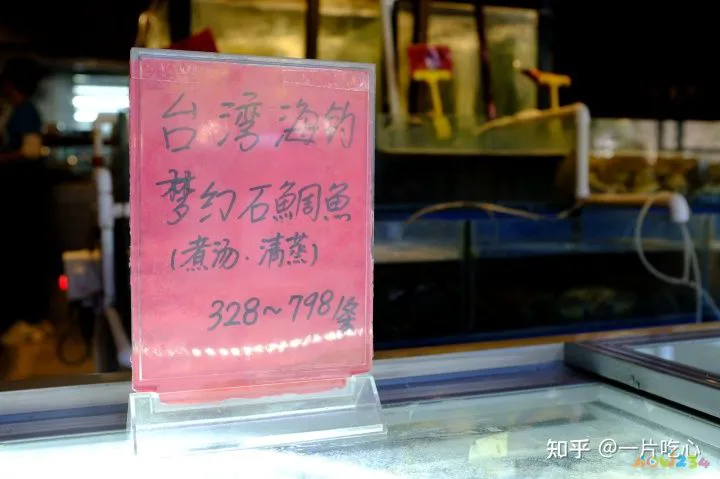 台湾海钓
梦幻石鯛魚
(煮汤.清蒸)
328~798/条
知乎 @一片吃心